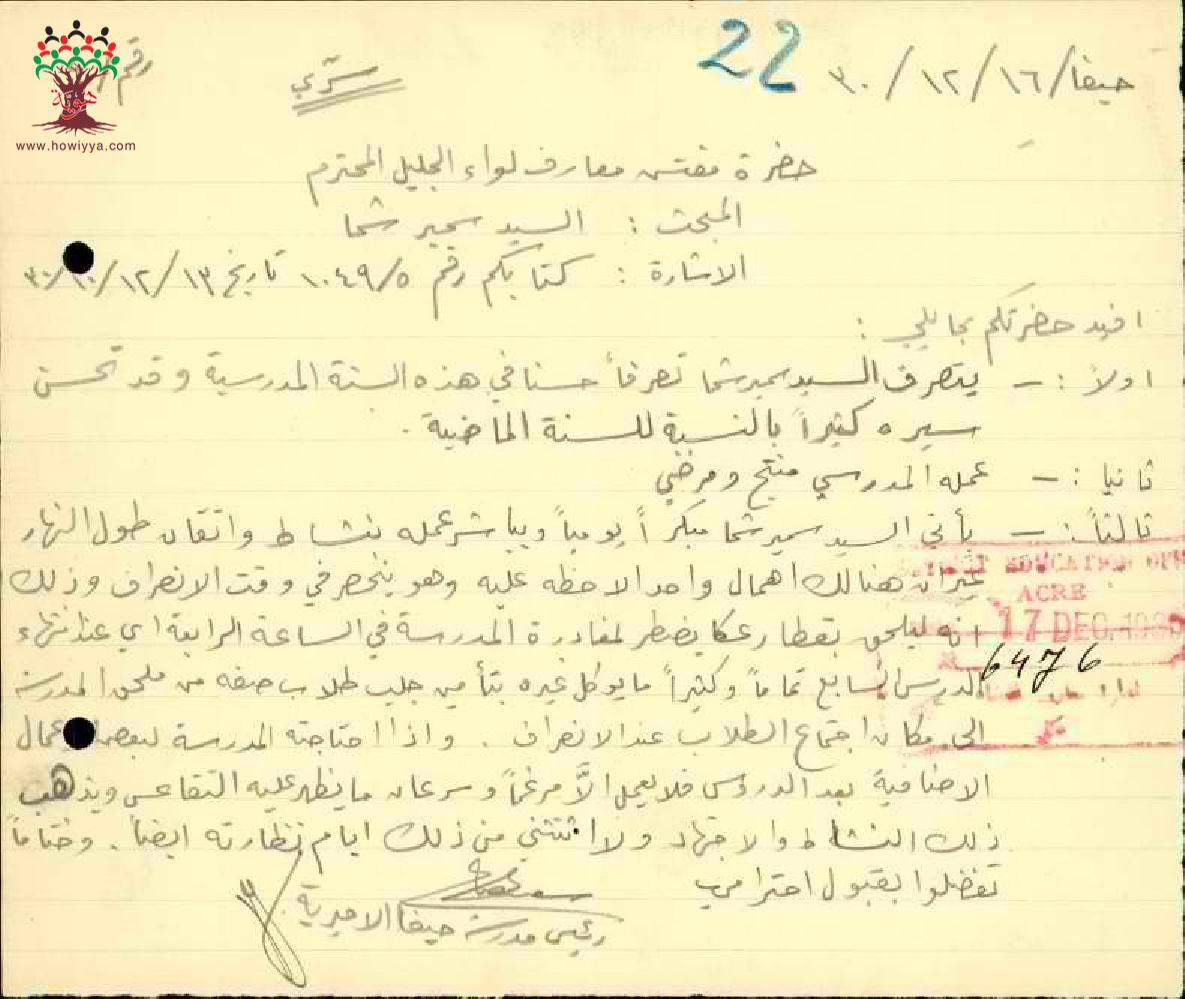 22
حيفا/١٦/١٢/٣٠
سرّي
رقم
هوية
www.howiyya.com
حضرة مفتش معارف لواء الجليل المحترم
المبحث : السيد سمير شما
الاشارة : كتابكم رقم ١٠٤٩/٥ تاريخ ١٣/١٢/
افيد حضرتكم بما يلي :
اولاً : – يتصرف السيد سمير شما تصرفاً حسنا في هذه السنة المدرسية وقد تحسن
سيره كثيراً بالنسبة للسنة الماضية .
ثانيا : – عمله المدرسي منتج ومرضي
ثالثاً : – يأتي السيد سمير شما مبكراً يومياً ويباشر عمله بنشاط واتقان طول النهار
غير ان هنالك اهمال واحد الاحظه عليه وهو ينحصر في وقت الانصراف وذلك
انه ليلحق بقطار عكا يضطر لمغادرة المدرسة في الساعة الرابعة اي عند انتهاء
الدرس السابع تماماً وكثيراً ما يوكل غيره بتأمين جلب طلاب صفه من ملحق المدرسة
الى مكان اجتماع الطلاب عند الانصراف . واذا احتاجته المدرسة لبعض الاعمال
الاضافية بعد الدروس فلا يعمل الاَّ مرغماً وسرعان ما يظهر عليه التقاعس ويذهب
ذلك النشاط والاجتهاد ولا استثني من ذلك ايام نظارته ايضاً . وختاماً
تفضلوا بقبول احترامي
رئيس مدرسة حيفا الاميرية
DISTRICT EDUCATION OFF
ACRE
17 DEC. 1930
6476